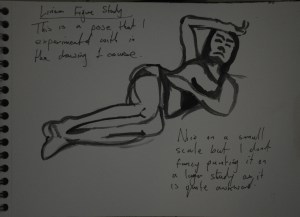 Linear Figure Study
This is a pose that I
experimented with in
the drawing & canvas
Nice on a small
scale but I don't
fancy painting it on
a larger study as it
is quite awkward